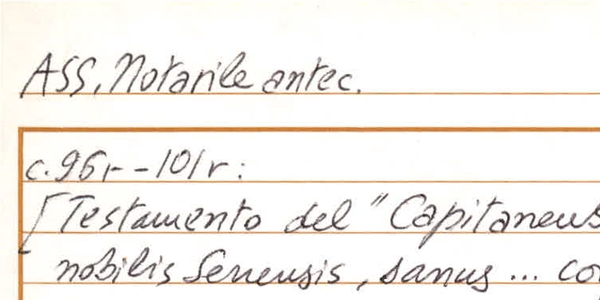 ASS, Notarile antec.
c. 96r--101r:
[Testamento del "Capitaneus
nobilis Senensis, sanus ... co